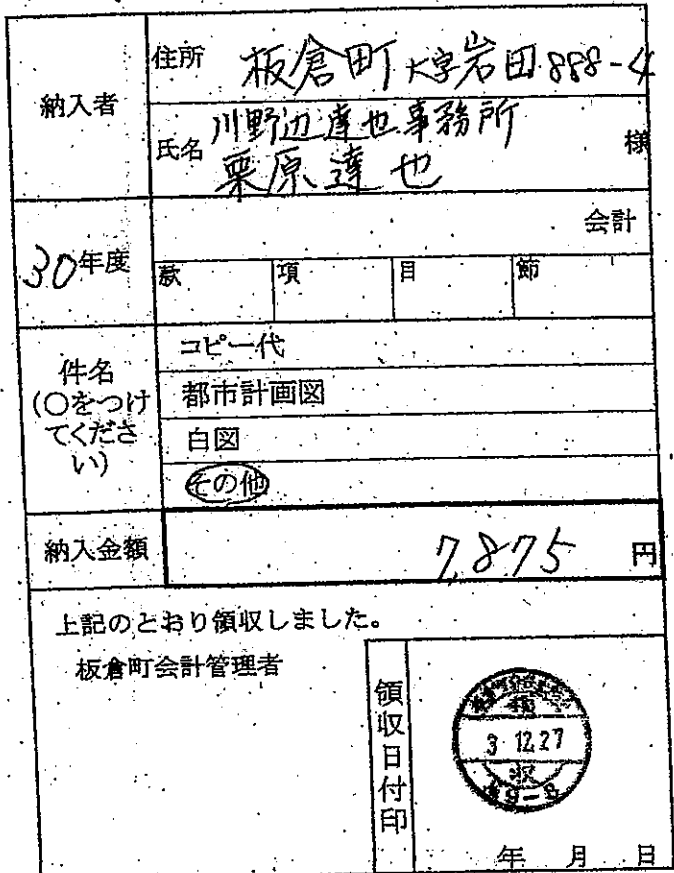 納入者
住所 板倉町大字岩田888-4
氏名 川野辺達也事務所
栗原達也 様
30年度
会計
款 項 目 節
件名
(○をつけ
てくださ
い)
コピー代
都市計画図
白図
その他
納入金額 7,875 円
上記のとおり領収しました。
板倉町会計管理者
領収日付印
3 12.27
収
年 月 日